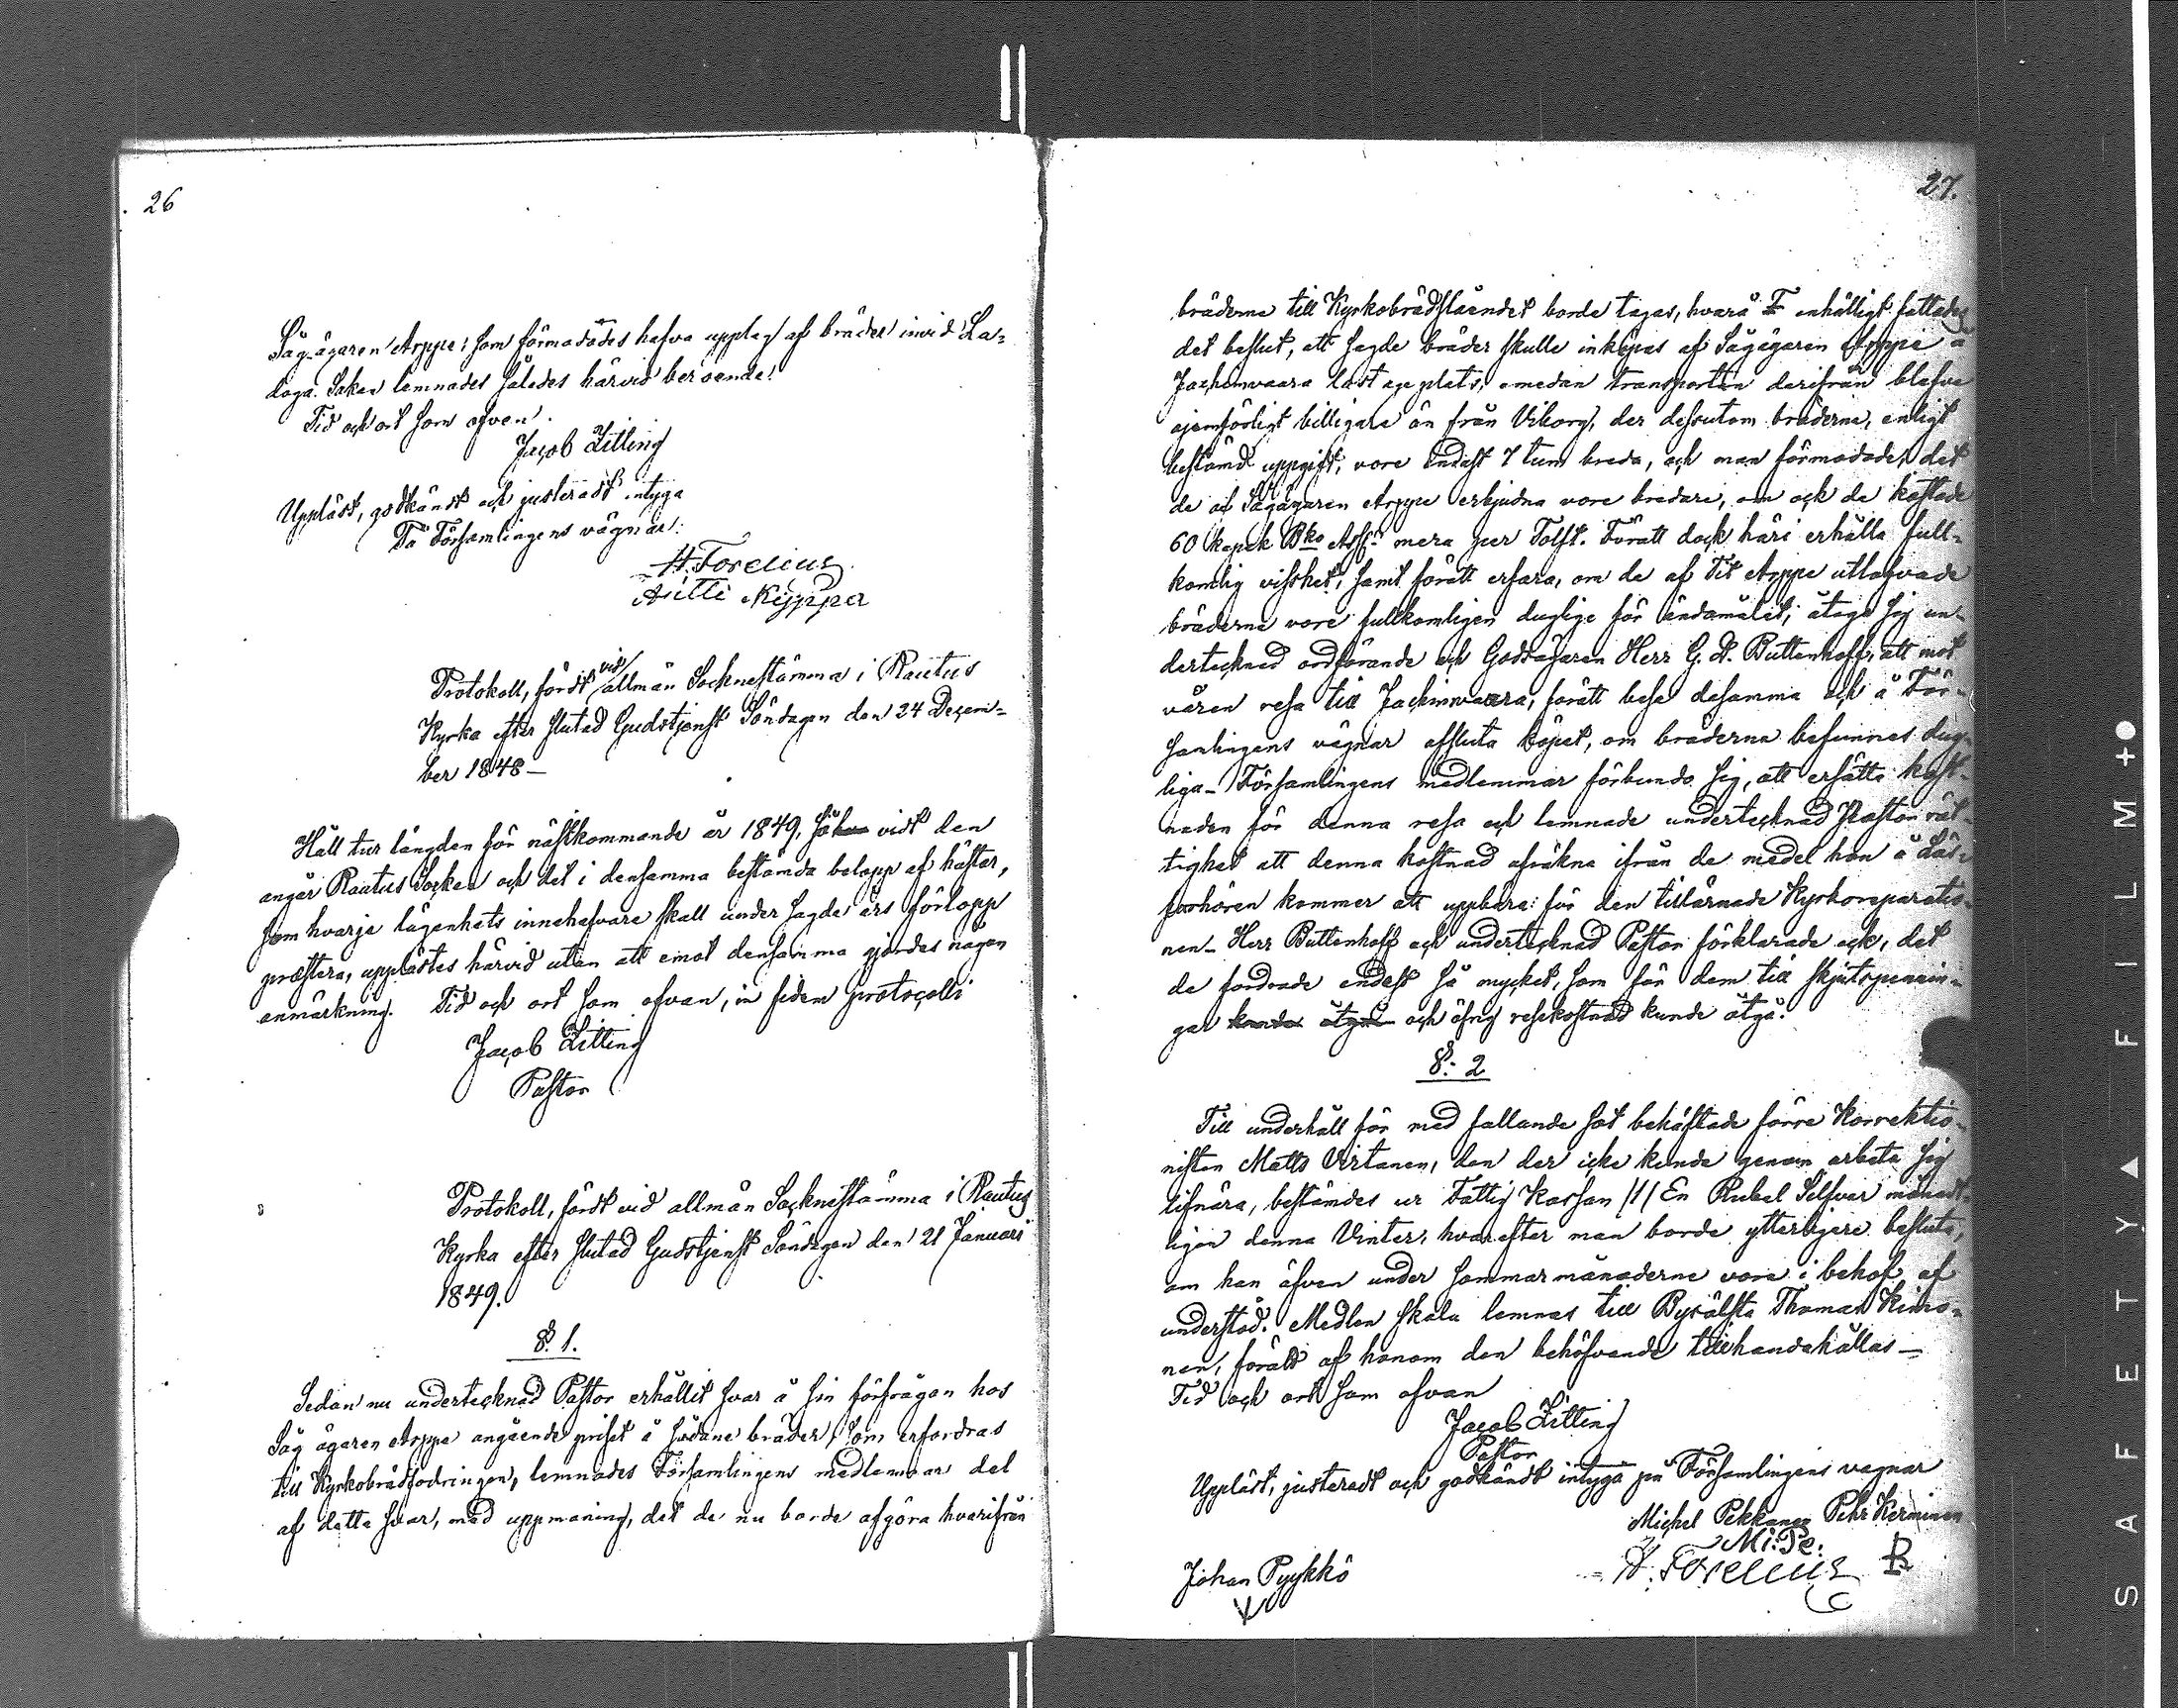 26
Såg-ägaren Arppe; som förmodades hafva upplag af bräder invid La=
doga. Saken lemnades således härvid beroende.
Tid och ort som ofvan.
Jacob Zitting
Uppläst, godkändt och justeradt intyga
På Församlingens vägnar:
H. Forelius
Antti Kippa
Protokoll, fördt vid allmän Socknestämma i Rautus
Kyrka efter slutad Gudstjenst Söndagen den 24 Decem=
ber 1848—
Hållturlängden för nästkommande år 1849, så vidt den
angår Rautus Socken och det i densamma bestämda belopp af hästar,
som hvarje lägenhets innehafvare skall under sagde års förlopp
præstera, upplästes härvid utan att emot densamma gjordes någon
anmärkning. Tid och ort som ofvan, in fidem protocolli
Jacob Zitting
Pastor
Protokoll, fördt vid allmän Sockenstämma i Rautus
Kyrka efter slutad Gudstjenst Söndagen den 21 Januari
1849.
§. 1.
Sedan nu undertecknad Pastor erhållit svar å sin förfrågan hos
Såg ägaren Arppe angående priset å sådane bräder, som erfordras
till Kyrkobrädfodringen, lemnades Församlingens medlemmar del
af detta svar, med uppmaning, det de nu borde afgöra hvarifrån
27.
bräderna till Kyrkobrädslåendet borde tagas, hvarå enhälligt fattades
det beslut, att sagde bräder skulle inköpas af Sågägaren Arppe å
Jachimvaara lastageplats, emedan transporten derifrån blefve
ojemförligt billigare än från Viborg, der dessutom bräderna, enligt
bestämd uppgift, vore endast 7 tum breda, och man förmodade, det
de af Sågägaren Arppe erbjudna vore bredare, om ock de kostade
60 kopek Bko Assr mera per Tolft. Föratt dock häri erhålla full=
komlig visshet, samt föratt erfara, om de af Tit Arppe utlofvade
bräderna vore fullkomligen duglige för ändamålet, åtogo sig un=
dertecknad ordförande och Godsägaren Herr G. A. Buttenhoff, att mot
våren resa till Jachimvaara, föratt bese desamma och å För=
samlingens vägnar afsluta köpet, om bräderna befunnes dug=
liga— Församlingens medlemmar förbundo sig, att ersätta kost=
naden för denna resa och lemnade undertecknad Pastor rät=
tighet att denna kostnad afräkna ifrån de medel han å Läs=
förhören kommer att uppbära för den tillärnade Kyrkoreparatio=
nen— Herr Buttenhoff och undertecknad Pastor förklarade ock, det
de fordrade endast så mycket, som för dem till skjutspennin=
gar kunde åtgå och öfrig resekostnad kunde åtgå.
§. 2
Till underhåll för med fallande sot behäftade förre Korrektio=
nisten Matts Virtanen, den der icke kunde genom arbete sig
lifnära, bestämdes ur Fattig Kassan /1/ En Rubel Silfver månat=
ligen denna Vinter, hvarefter man borde ytterligare besluta,
om han äfven under sommarmånaderne vore i behof af
understöd. Medlen skola lemnas till Byeålsta Thomas Kimo=
nen, föratt af honom den behöfvande tillhandahållas—
Tid och ort som ofvan
Jacob Zitting
Pastor
Uppläst, justeradt och godkändt intyga på Församlingens vägnar
Michel Pekkanen Pehr Kerminen
Mi: Pe:
H. Forelius
Johan Pyykkö
SAFETY▲FILM+●